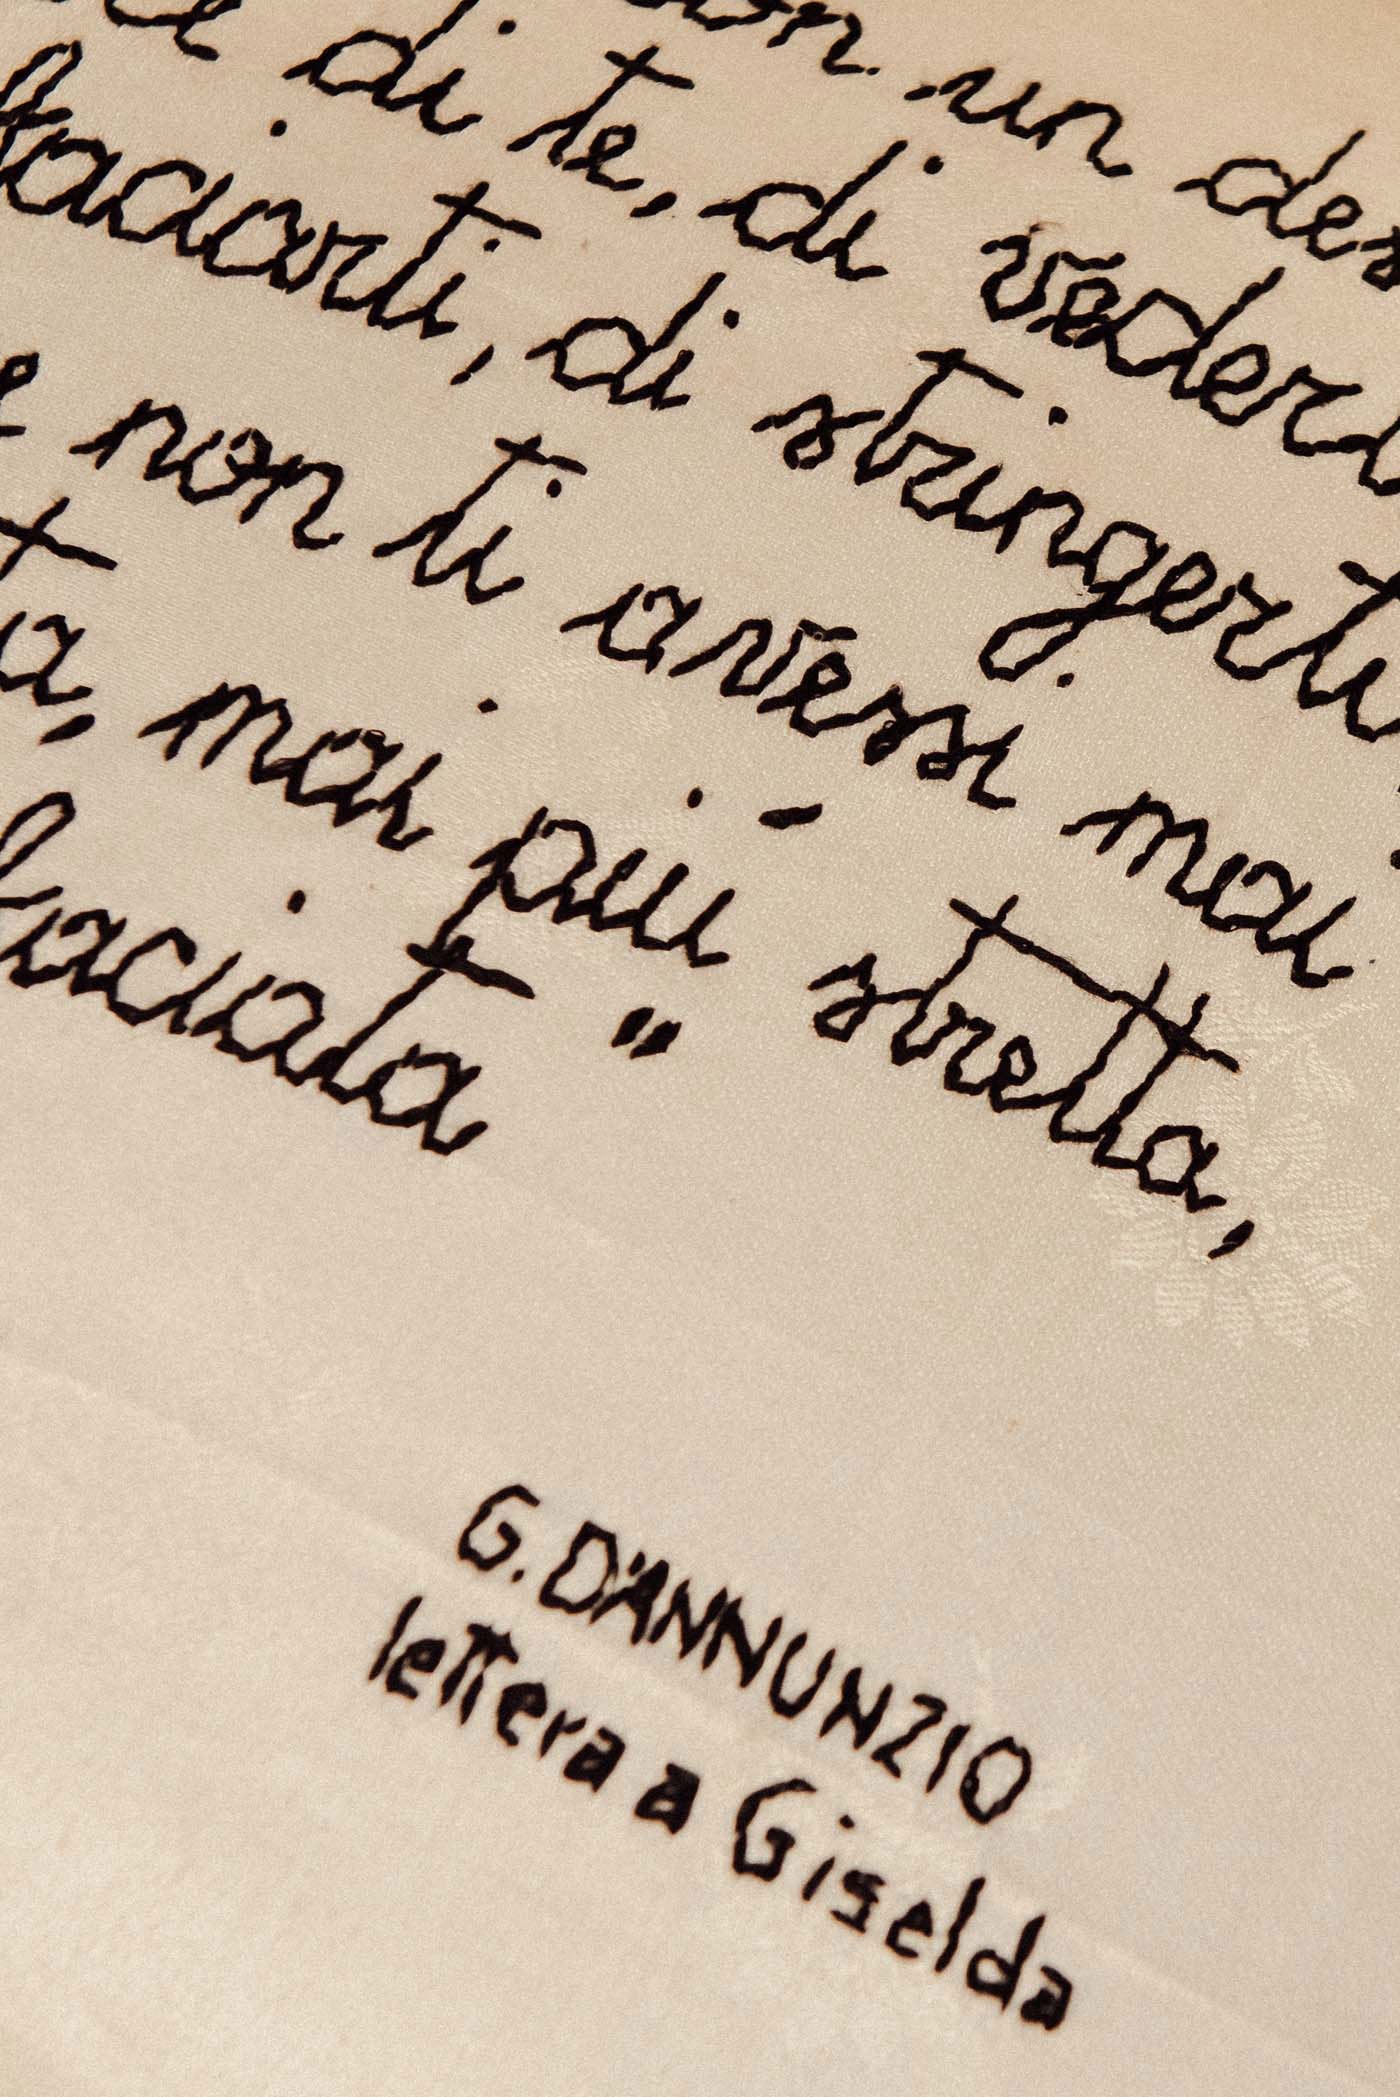 on un des
di te, di veder
baciarti, di stringerti
e non ti avessi mai
ta, mai più stretta,
baciata "
G. D'ANNUNZIO
lettera a Giselda